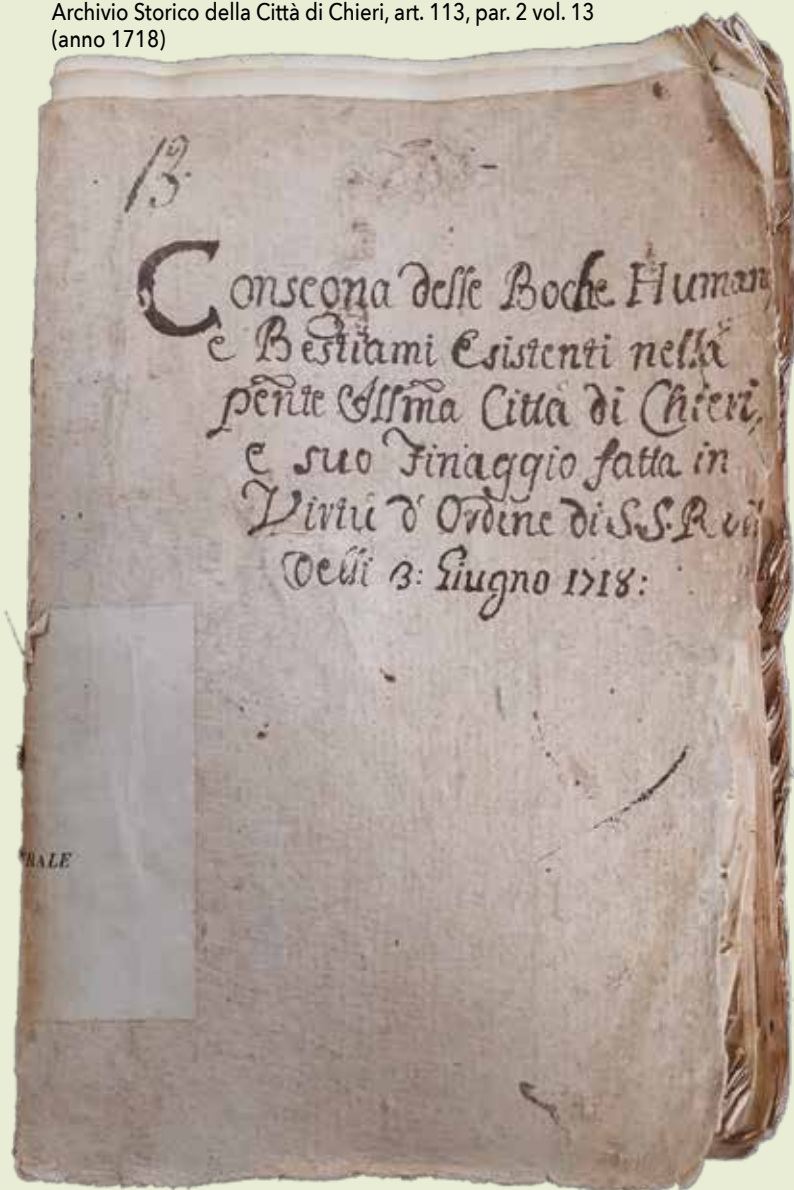 Archivio Storico della Città di Chieri, art. 113, par. 2 vol. 13
(anno 1718)
13
Consegna delle Boche Humane
e Bestiami Esistenti nella
pñte Illma Città di Chieri,
e suo Finaggio fatta in
Virtù d'Ordine di S.S.R.
Delli 3: Giugno 1718:
RALE